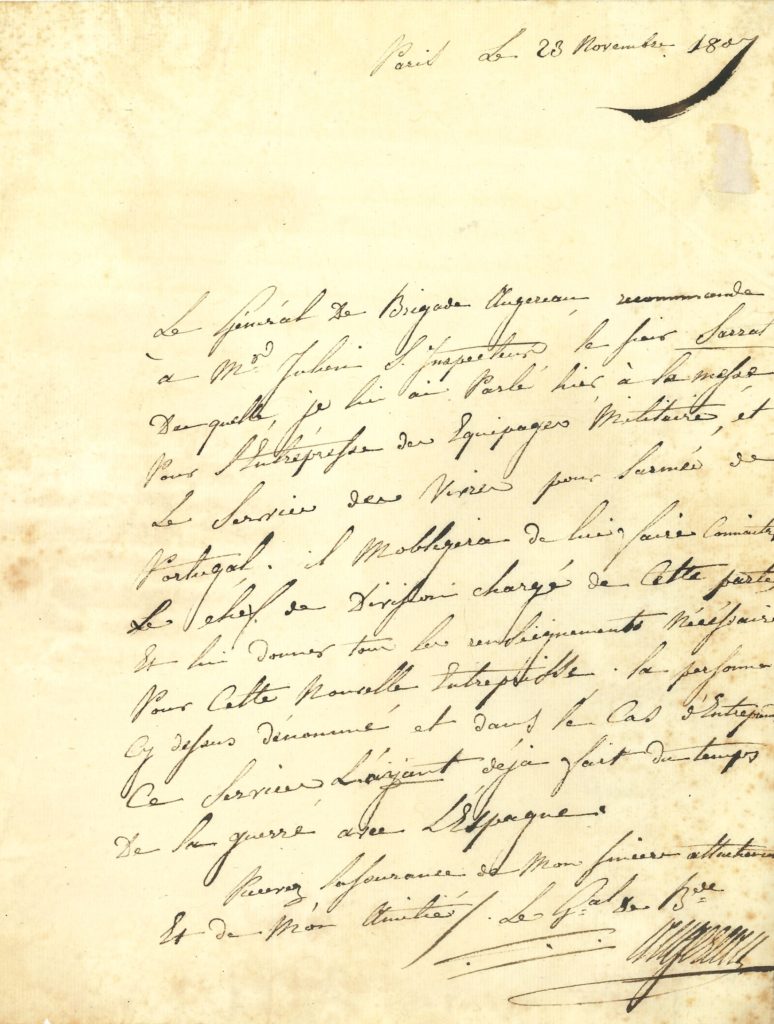 Paris Le 23 Novembre 1807
Le Général De Brigade Augereau recommande
à Mr. Julien S. Inspecteur le sieur Sarrat
Du quelle, je lui ai Parlé hier à la messe
Pour L'Entrépresse des Equipages Militaire, et
Le Service des Vivres pour L'armée de
Portugal. il M'obligera de lui faire Connaitre
Le chef de Division chargé de Cette partie
Et lui donner tous les renseignements Nécéssaire
Pour Cette Nouvelle Entreprisse. la personne
Cy dessus dénommé et dans le Cas d'Entreprendre
Ce Service L'ayant déja fait du temps
De la guerre avec L'Espagne.
Recevez l'assurance de Mon sincere attachement
Et de Mon Amitié /. Le Gal de Bde
Augereau